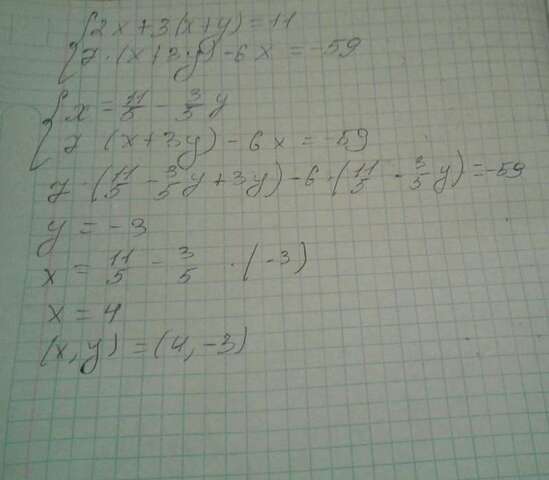 {2x+3(x+y)=11
{7·(x+3y)-6x=-59
{x=11/5-3/5y
{7(x+3y)-6x=-59
7·(11/5-3/5y+3y)-6·(11/5-3/5y)=-59
y=-3
x=11/5-3/5·(-3)
x=4
(x,y)=(4,-3)